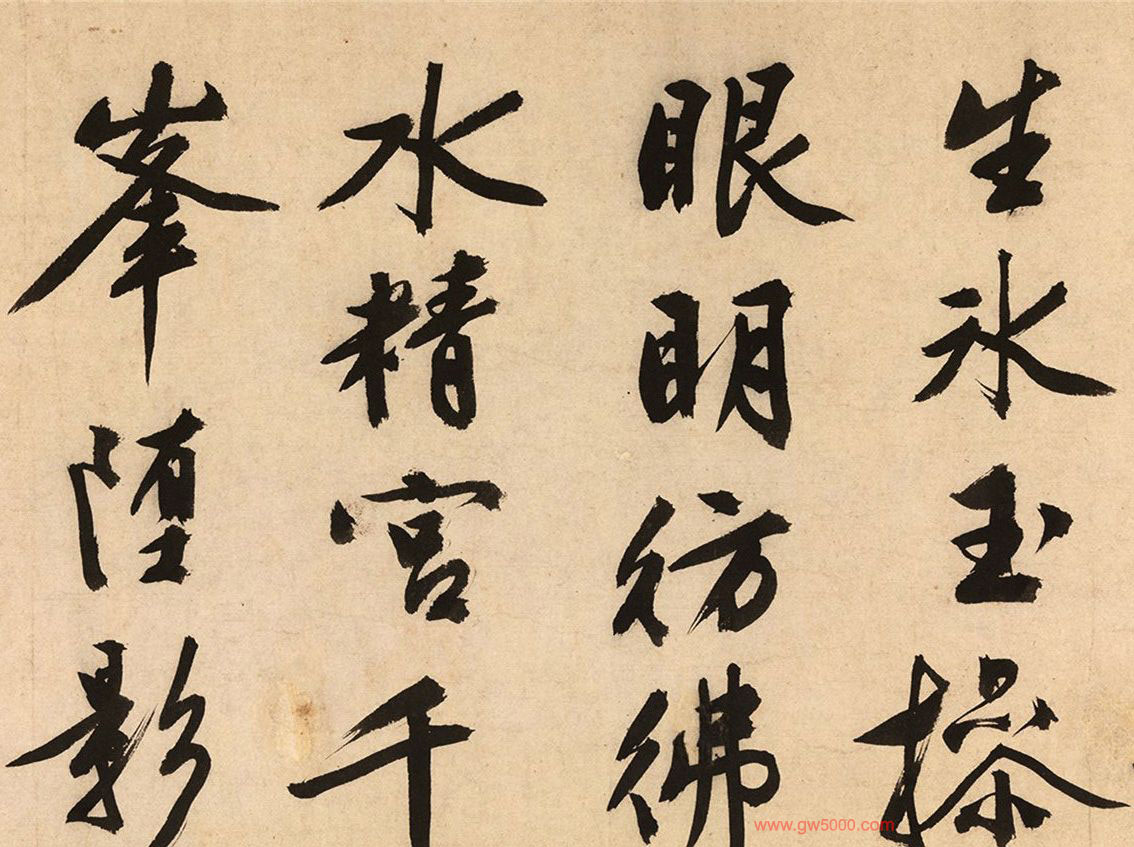 生氷玉操
眼明彷彿
水精宮千
峯堕影
www.gw5000.com